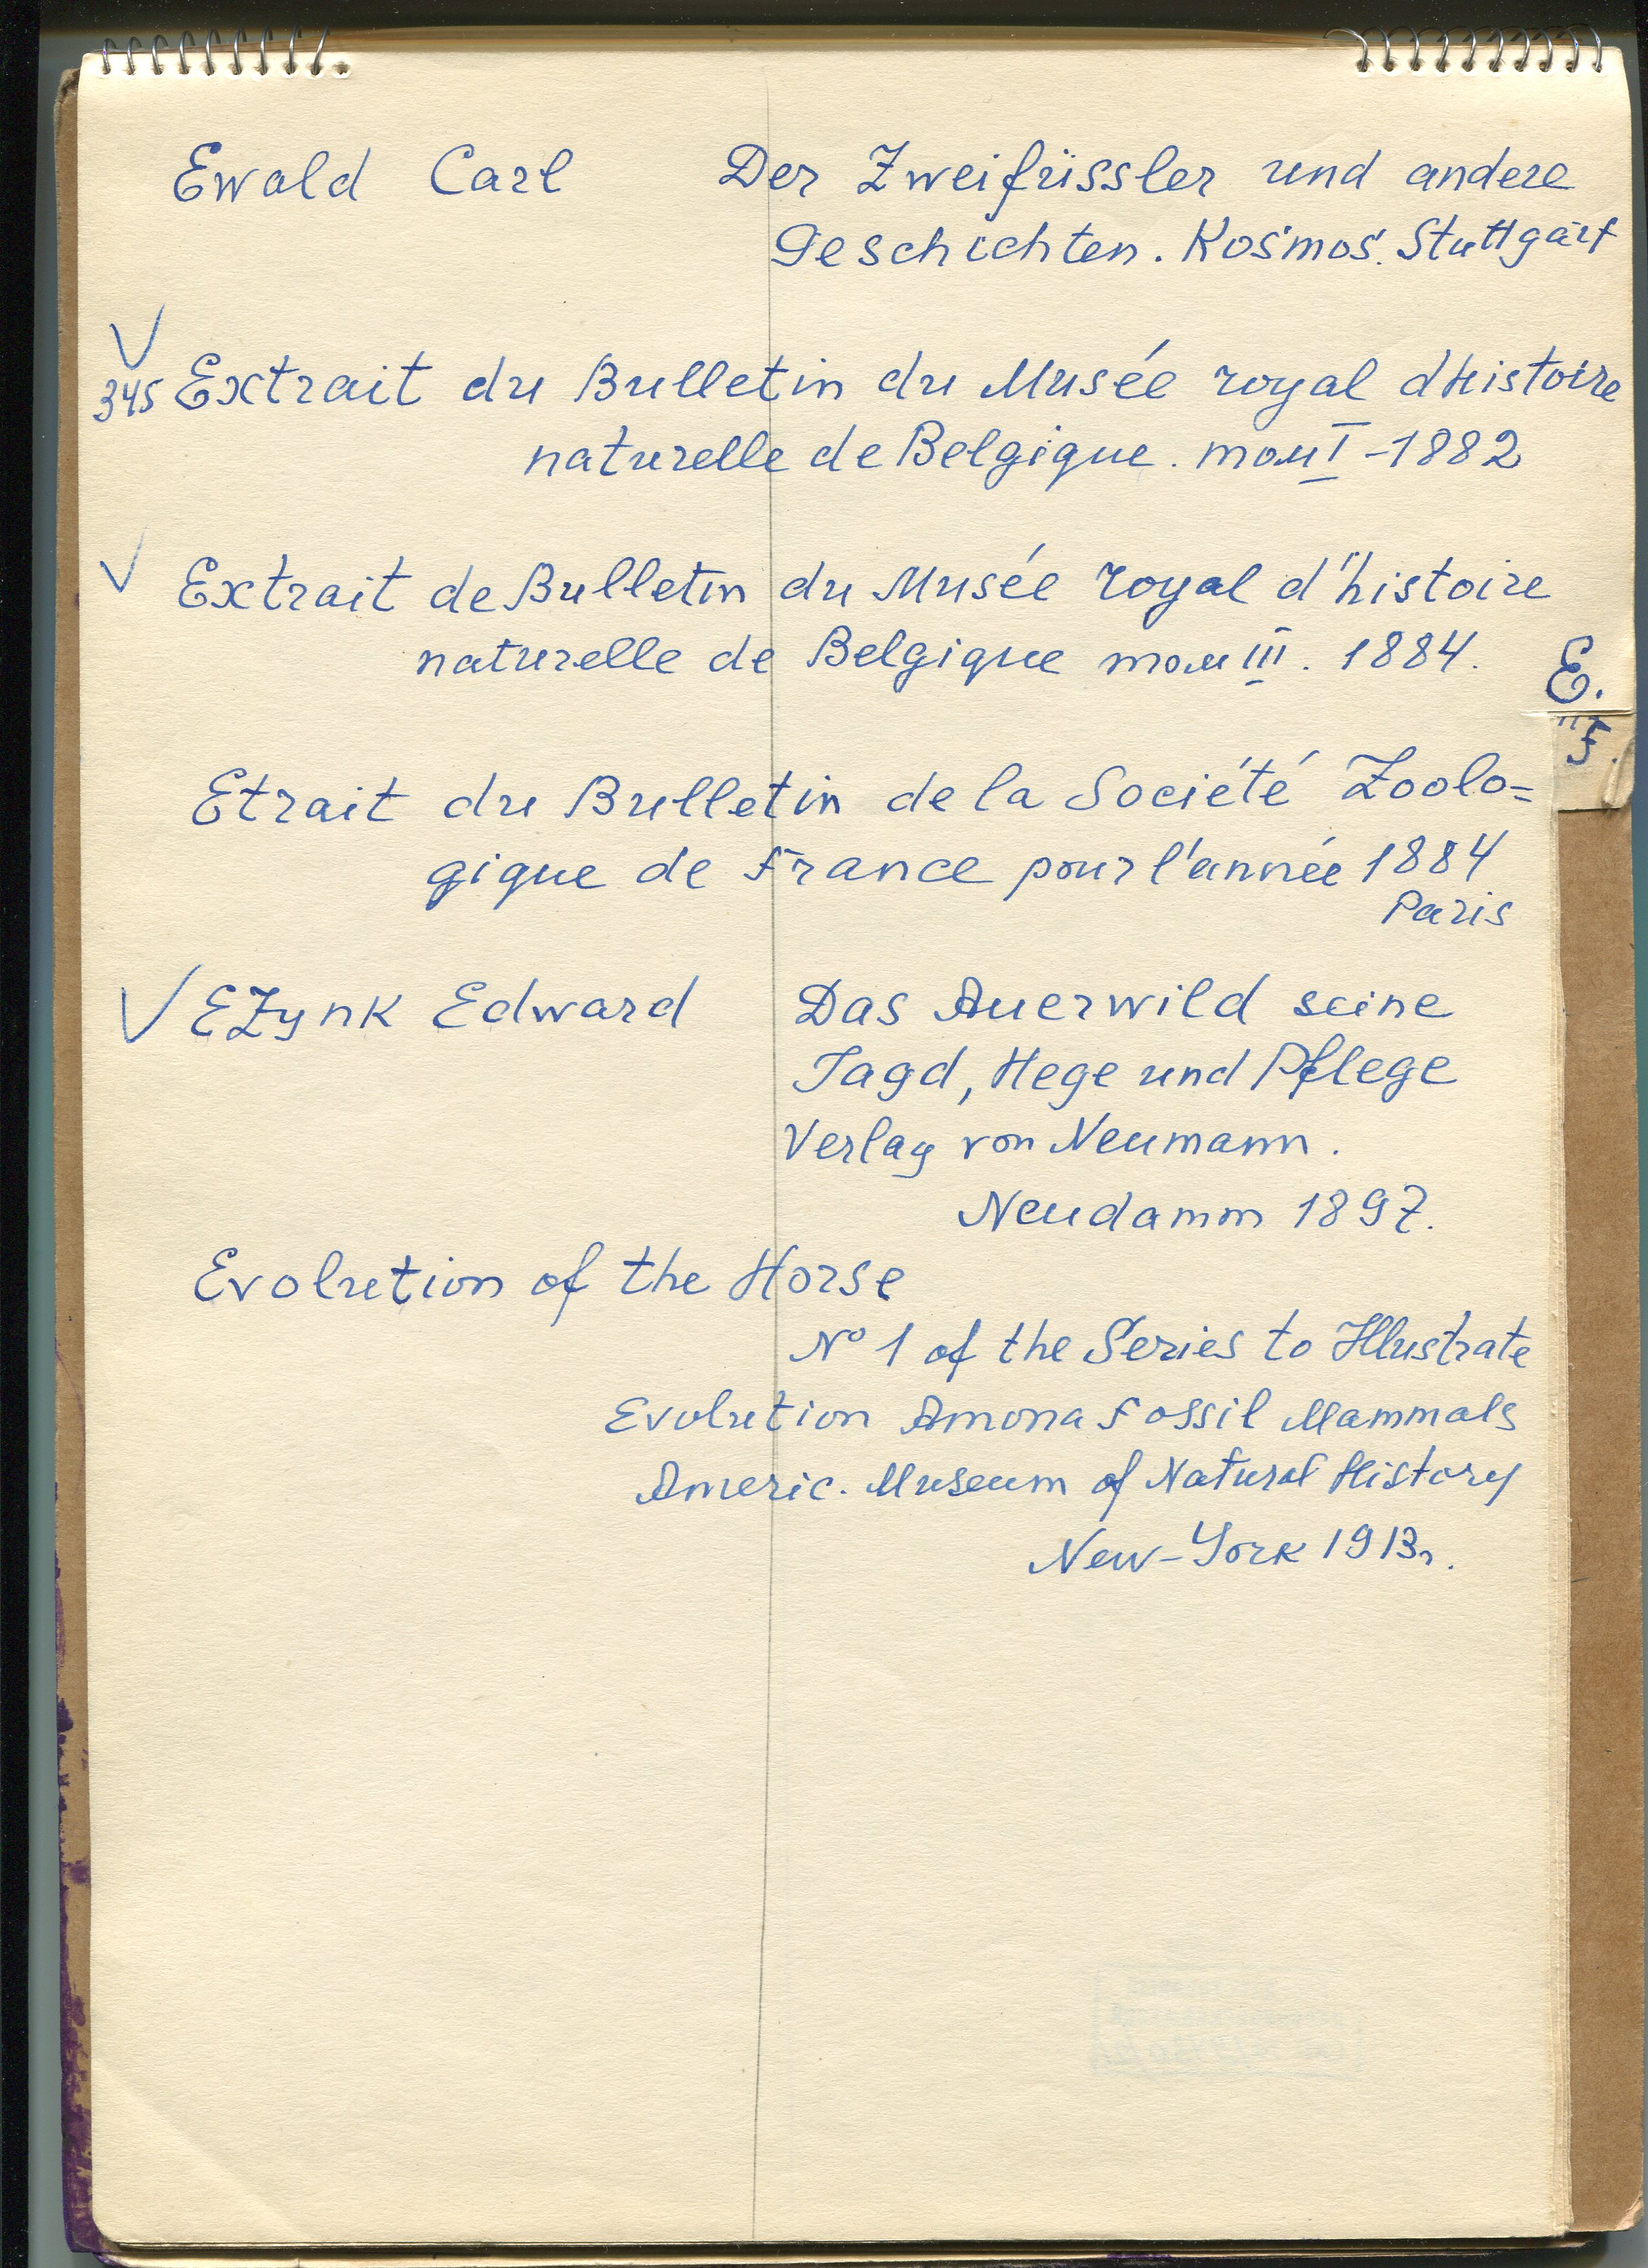 Ewald Carl Der Zweifüssler und andere
Geschichten. Kosmos. Stuttgart
345 Extrait du Bulletin du Musée royal dHistoire
naturelle de Belgique. том I - 1882
Extrait de Bulletin du Musée royal d'histoire
naturelle de Belgique том III. 1884.
E.
F.
Etrait du Bulletin de la Société Zoolo=
gique de France pour l'année 1884
Paris
EZynk Edward Das Auerwild seine
Jagd, Hege und Pflege
Verlag von Neumann.
Neudamm 1897.
Evolution of the Horse
No 1 of the Series to Illustrate
Evolution Amona Fossil Mammals
Americ. Museum of Natural History
New-York 1913г.